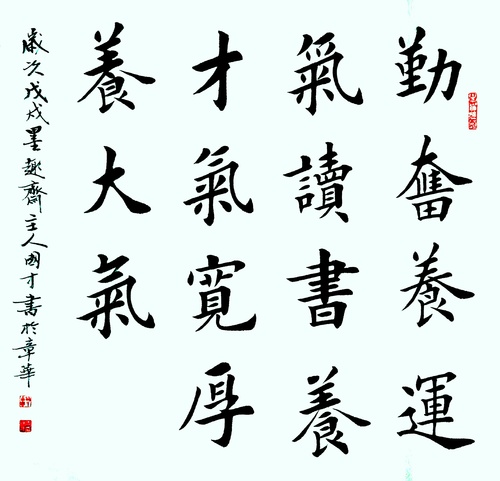 勤奮養運
氣讀書養
才氣寬厚
養大氣
歲次戊戌墨趣齋主人國才書於章華